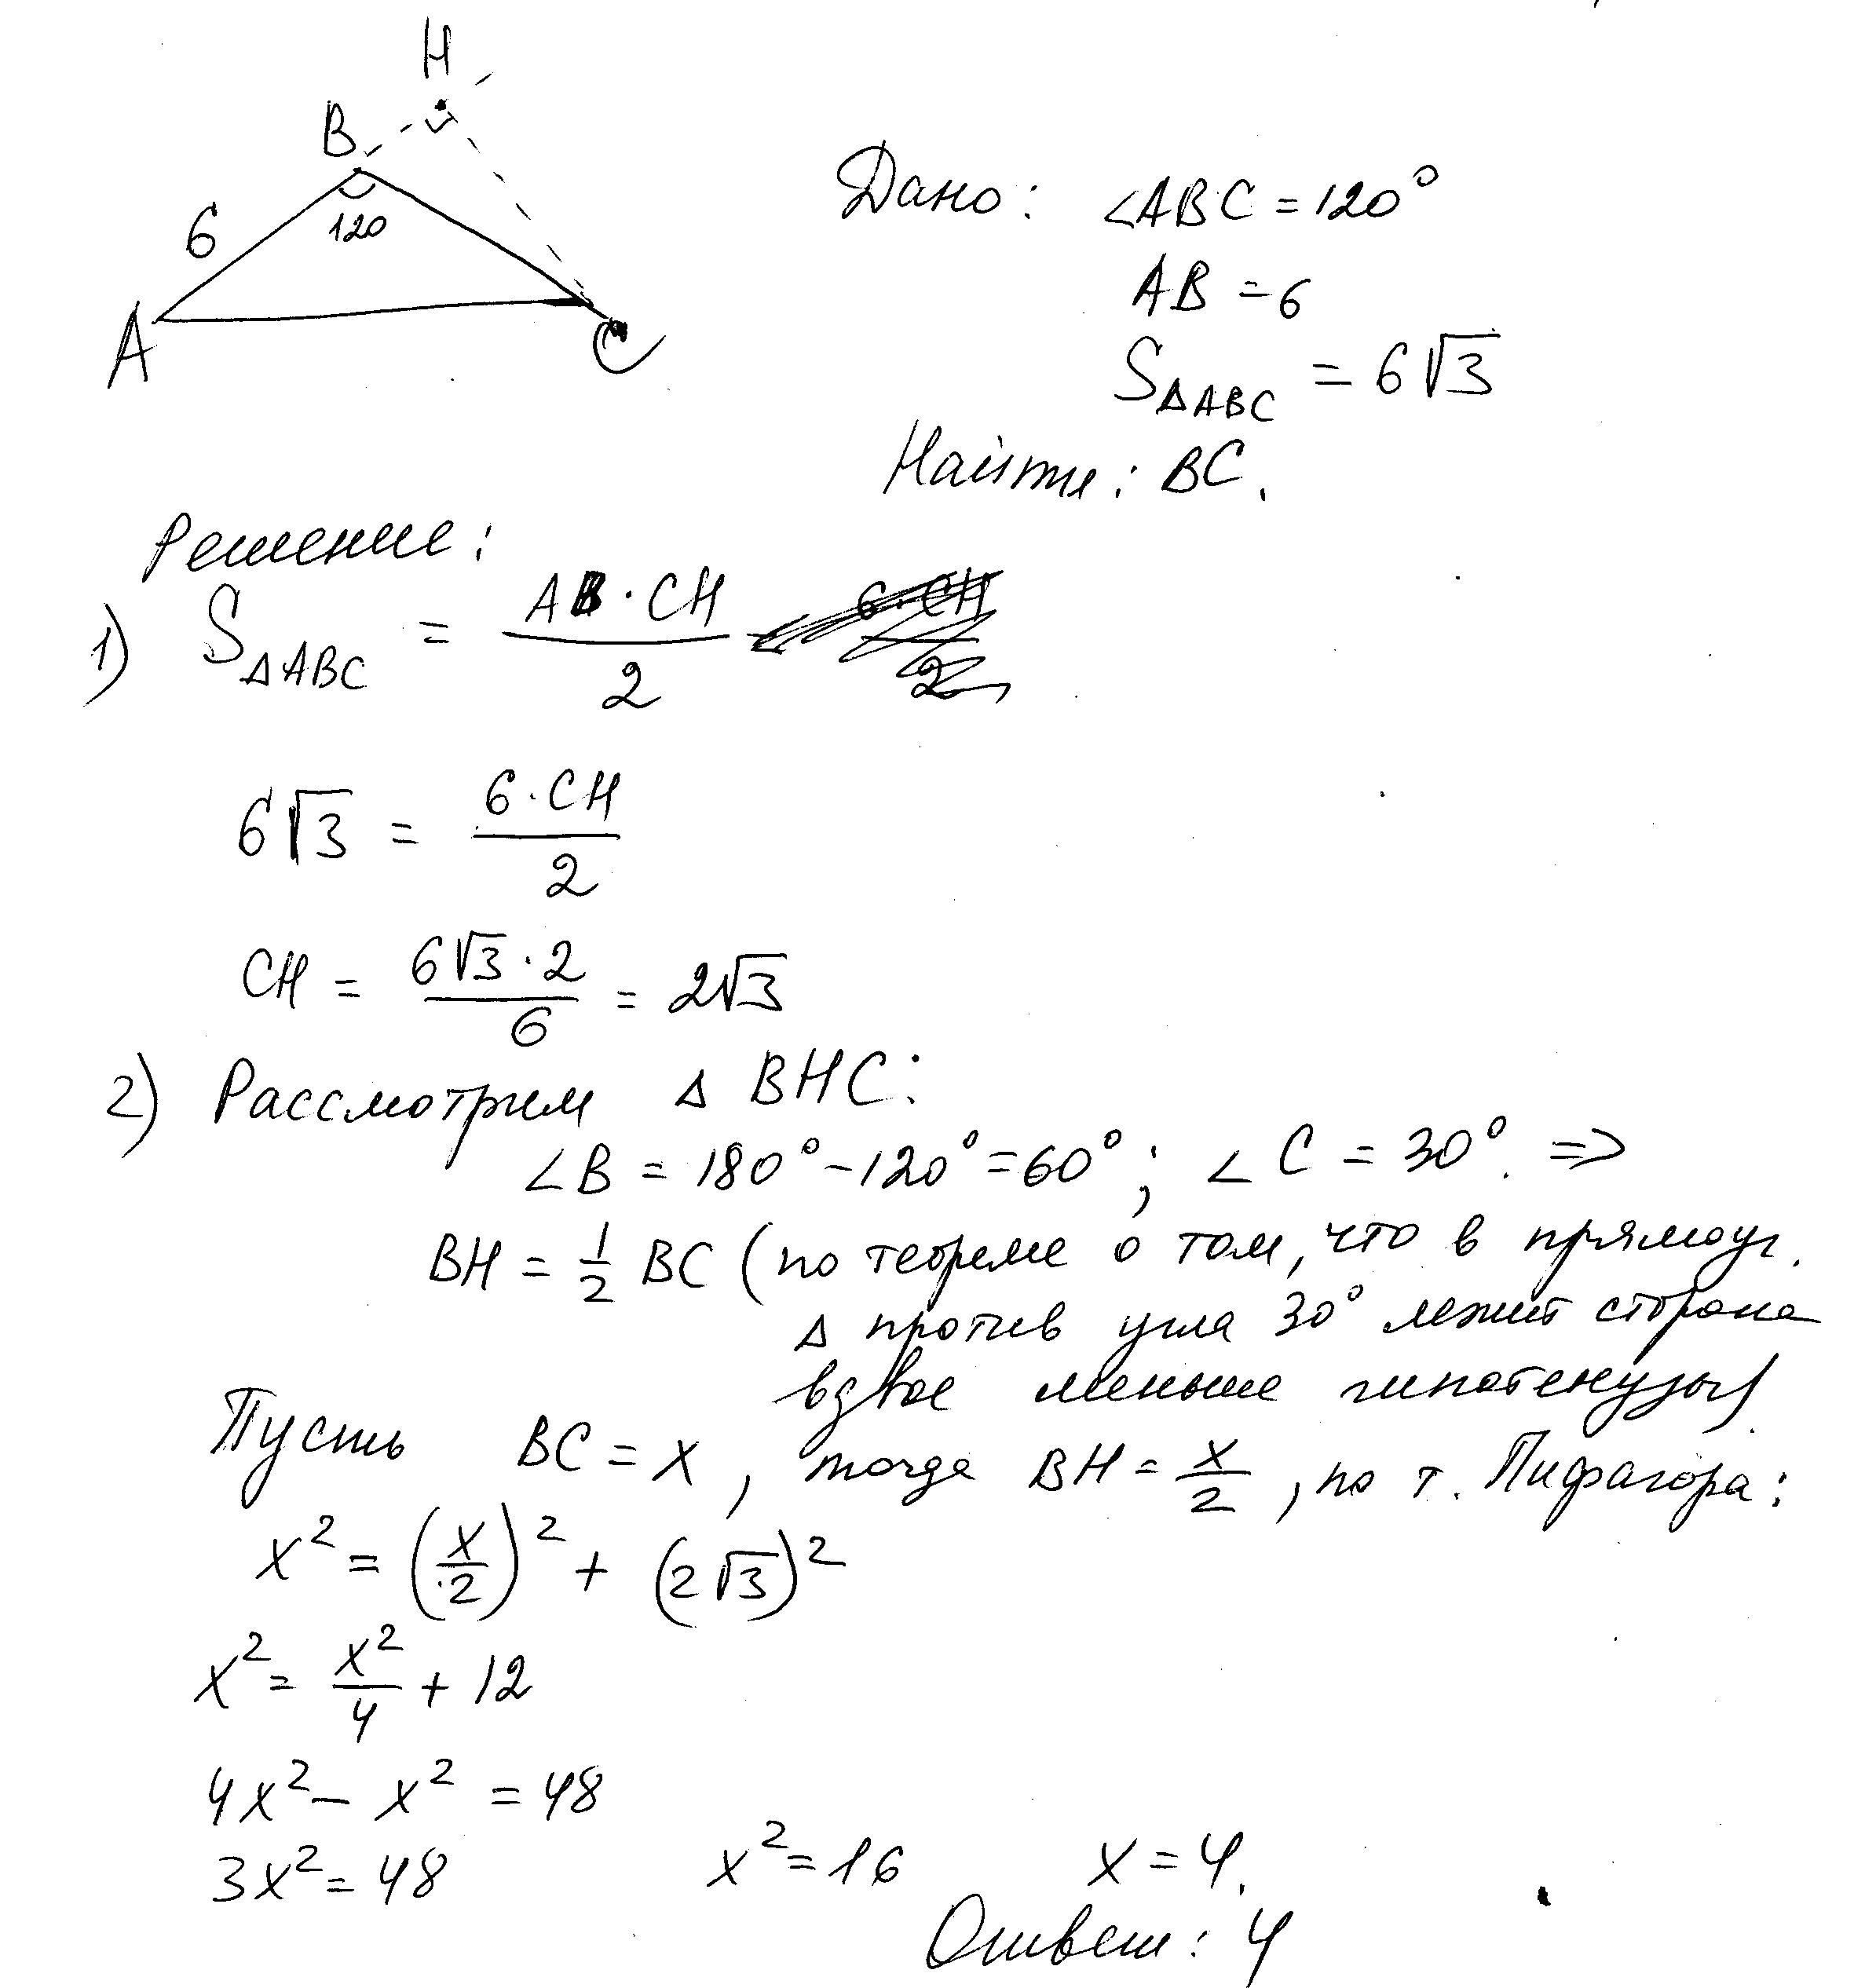 H
B
6
120
A
C
Дано: ∠ABC = 120°
AB = 6
S△ABC = 6√3
Найти: BC.
Решение:
1) S△ABC = AB · CH / 2 = 6 · CH / 2
6√3 = 6 · CH / 2
CH = 6√3 · 2 / 6 = 2√3
2) Рассмотрим △ BHC:
∠B = 180° - 120° = 60°; ∠C = 30°. =>
BH = 1/2 BC (по теореме о том, что в прямоуг.
△ против угла 30° лежит сторона
вдвое меньше гипотенузы).
Пусть BC = x, тогда BH = x/2, по т. Пифагора:
x² = (x/2)² + (2√3)²
x² = x²/4 + 12
4x² - x² = 48
3x² = 48 x² = 16 x = 4.
Ответ: 4